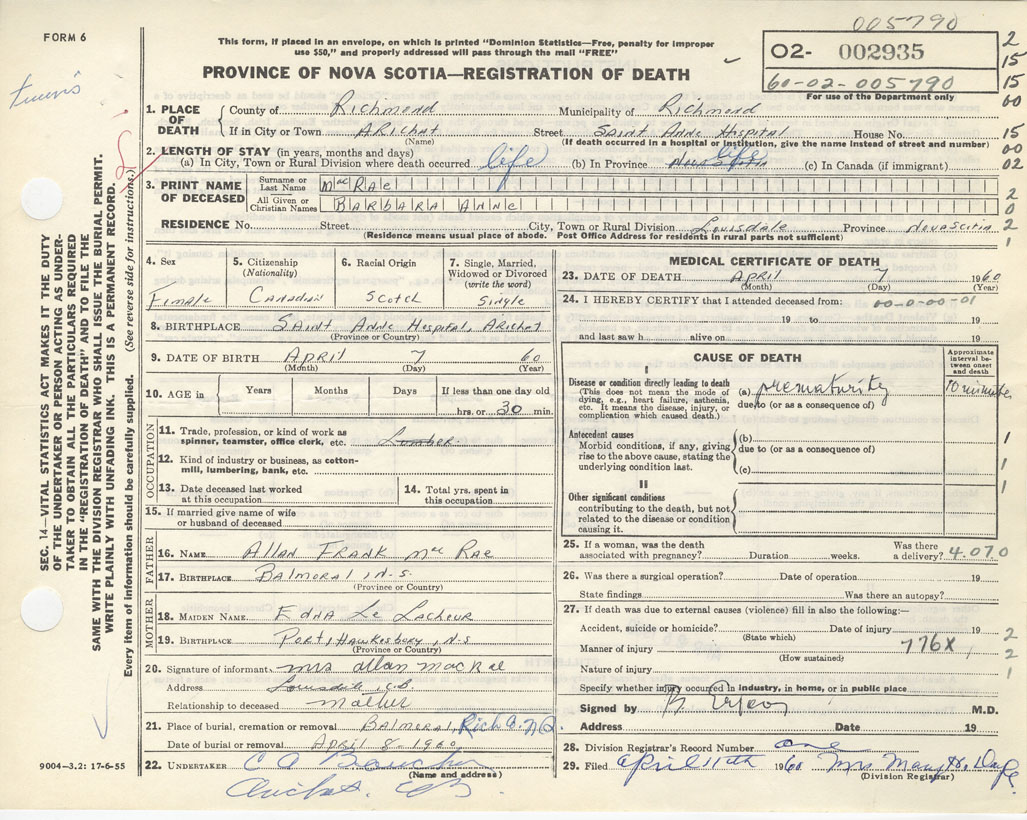 005790
FORM 6
This form, if placed in an envelope, on which is printed "Dominion Statistics—Free, penalty for improper
use $50," and properly addressed will pass through the mail "FREE"
PROVINCE OF NOVA SCOTIA—REGISTRATION OF DEATH
02- 002935
60-02-005790
For use of the Department only
2
15
15
00
15
00
02
2
0
2
1
1. PLACE OF DEATH County of Richmond Municipality of Richmond
If in City or Town ARichat Street Saint Anne Hospital House No.
(Name) (If death occurred in a hospital or institution, give the name instead of street and number)
2. LENGTH OF STAY (in years, months and days)
(a) In City, Town or Rural Division where death occurred life (b) In Province life (c) In Canada (if immigrant)
3. PRINT NAME OF DECEASED Surname or Last Name MacRae
All Given or Christian Names BARBARA ANNE
RESIDENCE No. Street City, Town or Rural Division Louisdale Province Nova Scotia
(Residence means usual place of abode. Post Office Address for residents in rural parts not sufficient)
SEC. 14—VITAL STATISTICS ACT MAKES IT THE DUTY
OF THE UNDERTAKER OR PERSON ACTING AS UNDER-
TAKER TO OBTAIN ALL THE PARTICULARS REQUIRED
IN THE "REGISTRATION OF DEATH" AND TO FILE THE
SAME WITH THE DIVISION REGISTRAR WHO SHALL ISSUE THE BURIAL PERMIT.
WRITE PLAINLY WITH UNFADING INK. THIS IS A PERMANENT RECORD.
Every item of information should be carefully supplied. (See reverse side for instructions.)
4. Sex Female
5. Citizenship (Nationality) Canadian
6. Racial Origin Scotch
7. Single, Married, Widowed or Divorced (write the word) Single
8. BIRTHPLACE Saint Anne Hospital, Arichat
(Province or Country)
9. DATE OF BIRTH April 7 60
(Month) (Day) (Year)
10. AGE in Years Months Days If less than one day old
hrs. or 30 min.
OCCUPATION
11. Trade, profession, or kind of work as
spinner, teamster, office clerk, etc.
12. Kind of industry or business, as cotton-
mill, lumbering, bank, etc.
13. Date deceased last worked
at this occupation
14. Total yrs. spent in
this occupation
15. If married give name of wife
or husband of deceased
FATHER
16. NAME Allan Frank Mac Rae
17. BIRTHPLACE Balmoral, N.S.
(Province or Country)
MOTHER
18. MAIDEN NAME Edna Le Lacheur
19. BIRTHPLACE Port Hawkesbury, N.S
(Province or Country)
20. Signature of informant Mrs Allan MacRae
Address Louisdale, C.B.
Relationship to deceased Mother
21. Place of burial, cremation or removal Balmoral, Rich Co. N.S.
Date of burial or removal April 8. 1960
22. UNDERTAKER C A Boucher
(Name and address)
Arichat CB.
9004—3.2: 17-6-55
MEDICAL CERTIFICATE OF DEATH
23. DATE OF DEATH April 7 1960
(Month) (Day) (Year)
24. I HEREBY CERTIFY that I attended deceased from: 00-0-00-01
19 to 19
and last saw h alive on 19
CAUSE OF DEATH
Approximate interval between onset and death
I
Disease or condition directly leading to death
(This does not mean the mode of
dying, e.g., heart failure, asthenia,
etc. It means the disease, injury, or
complication which caused death.)
(a) prematurity
due to (or as a consequence of)
Antecedent causes
Morbid conditions, if any, giving
rise to the above cause, stating the
underlying condition last.
(b) 1
due to (or as a consequence of)
(c) 1
II
1
Other significant conditions
contributing to the death, but not
related to the disease or condition
causing it.
25. If a woman, was the death
associated with pregnancy? Duration weeks. Was there
a delivery? 4.070
26. Was there a surgical operation? Date of operation 19
State findings Was there an autopsy?
27. If death was due to external causes (violence) fill in also the following:—
Accident, suicide or homicide? Date of injury 19
(State which)
Manner of injury 776X
(How sustained)
Nature of injury
2
2
1
Specify whether injury occurred in industry, in home, or in public place
Signed by M.D.
Address Date 19
28. Division Registrar's Record Number one
29. Filed April 11th 1960 Mrs Mary
(Division Registrar)